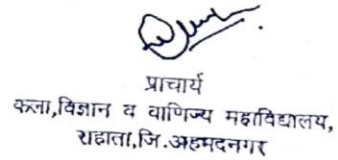 प्राचार्य
कला,विज्ञान व वाणिज्य महाविद्यालय,
राहाता,जि.अहमदनगर